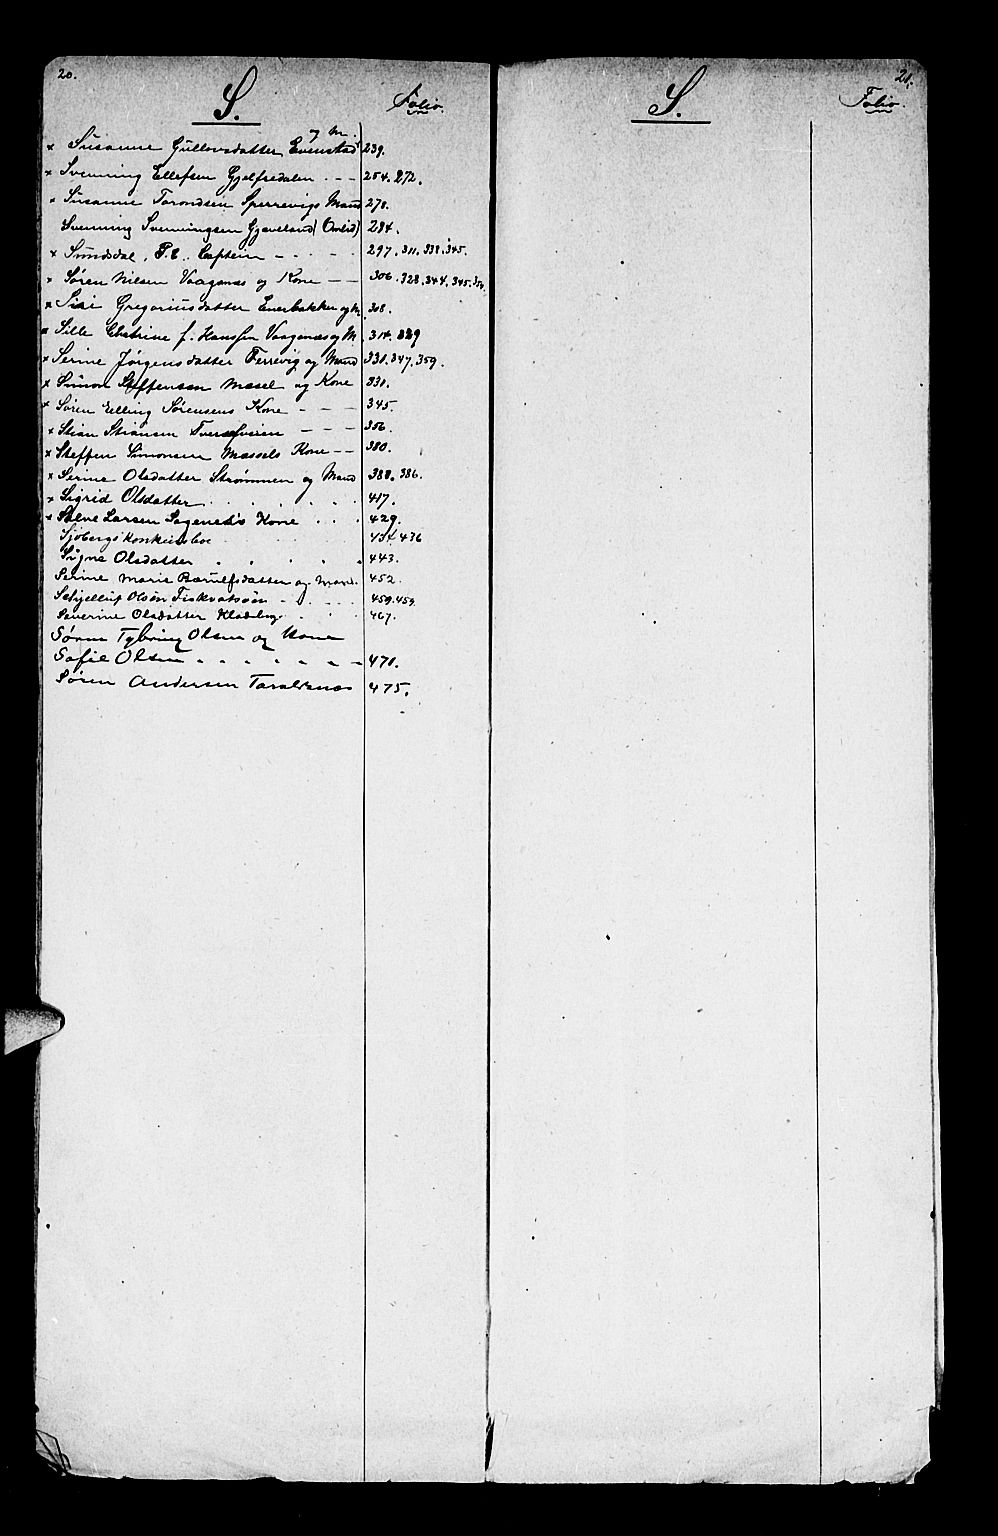 20.
S.
Folio.
og M.
x Susanne Gullovsdatter Evenstad 239.
x Svenning Ellefsen Gjelfsedalen . - - 254. 272.
x Susanne Torondsen Sperrevigs Mand 278.
Svenning Svenningsen Gjaveland (Omlid) 284.
x Sundsdal, P. E. Captein - . . . . 297. 311. 338. 345.
x Søren Nilsen Vaagsnæs og Kone - - 306. 328. 344. 345. 354.
x Siri Gregoriusdatter Enerbakken og M. 308.
x Sille Chatrine f. Hanssen Vaagsnæs og M. 314. 329
x Serine Jørgensdatter Terrevig og Mand 330. 347. 359.
x Simon Steffensen Messel og Kone 330.
x Søren Elling Sørensens Kone - - - 345.
x Stian Stiansen - - - 356.
x Steffen Simonsen Messels Kone - - 380.
x Serine Olsdatter Strømmen og Mand 388. 386.
x Sigrid Olsdatter . . . . 417.
x Salve Larsen Kone . . . 429.
Sjøbergs konkursbo 434 436
Signe Olsdatter . . . . . 443.
Serine Marie datter og Mand. 452.
Olsøn Fiskvatsøn - . . . 459. 459.
Severine Olsdatter Kladeberg . . . 467.
Søren Tybring Olsen og Kone
Sofie Olsen . . . . . . - 470.
Søren Andersen Taraldsnæs 475.
21.
S.
Folio.